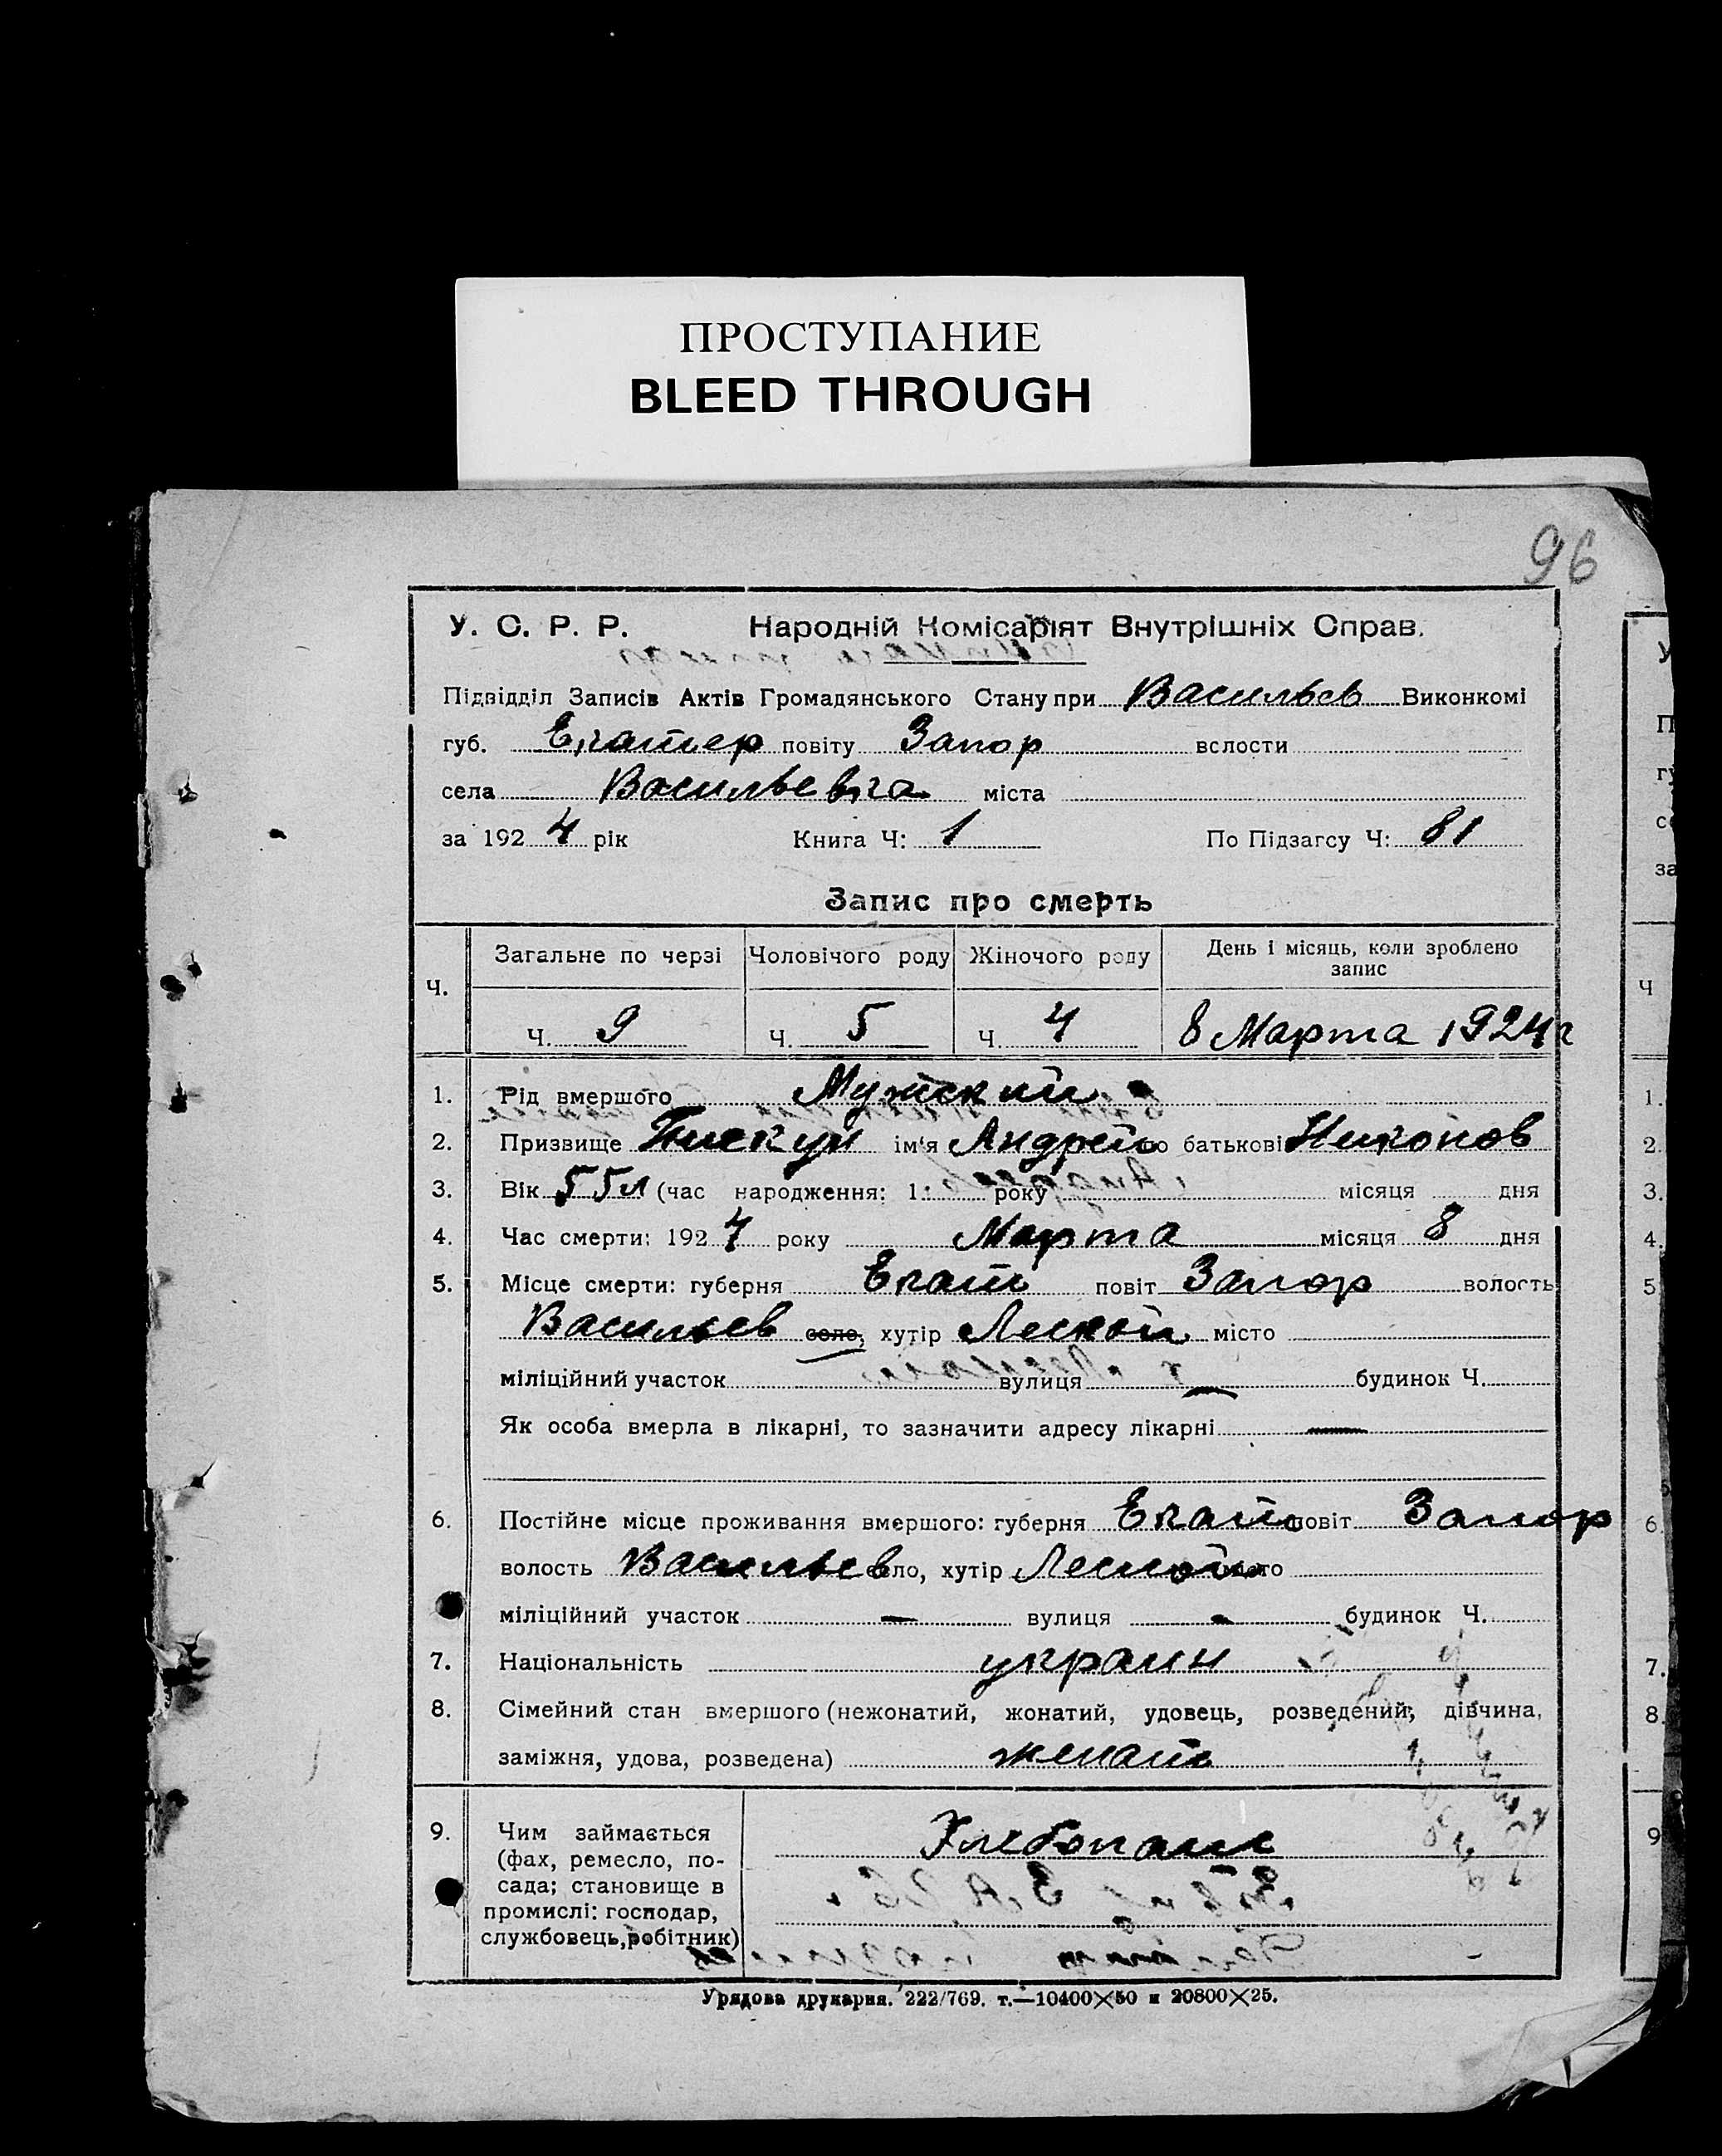 ПРОСТУПАНИЕ
BLEED THROUGH
96
У. С. Р. Р. Народній Комісаріят Внутрішніх Справ.
Підвідділ Записів Актів Громадянського Стану при Васильев Виконкомі
губ. Екатер повіту Запор волости
села Васильевка міста
за 1924 рік Книга Ч: 1 По Підзагсу Ч: 81
Запис про смерть
Ч. Загальне по черзі Чоловічого роду Жіночого роду День і місяць, коли зроблено запис
Ч. 9 Ч. 5 Ч. 4 8 Марта 1924 г
1. Рід вмершого Мужский
2. Призвище Пискун ім‘я Андрей по батькові Никонов
3. Вік 55 л (час народження: 1 року місяця дня
4. Час смерти: 1924 року Марта місяця 8 дня
5. Місце смерти: губерня Екат повіт Запор волость
Васильев село, хутір Лесной місто
міліційний участок вулиця — будинок Ч.
Як особа вмерла в лікарні, то зазначити адресу лікарні —
6. Постійне місце проживання вмершого: губерня Екат повіт Запор
волость Васильев село, хутір Лесной місто
міліційний участок — вулиця - будинок Ч.
7. Національність украин
8. Сімейний стан вмершого (нежонатий, жонатий, удовець, розведений, дівчина,
заміжня, удова, розведена) женат
9. Чим займається Хлебопаш
(фах, ремесло, по-
сада; становище в
промислі: господар,
службовець, робітник)
Урядова друкарня. 222/769. т.—10400×50 и 20800×25.